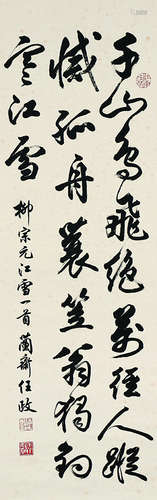 千山鳥飛絕萬徑人蹤
滅孤舟蓑笠翁獨釣
寒江雪
柳宗元江雪一首蘭齋任政